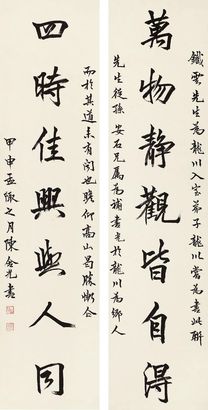 萬物靜觀皆自得
鐵雲先生為龍川入室弟子龍川嘗為書此聯
先生從孫安石兄屬為補書之龍川為鄉人
四時佳興與人同
而於其道未有聞也晚仰高山曷勝慚
甲申孟㫌之月陳含光書